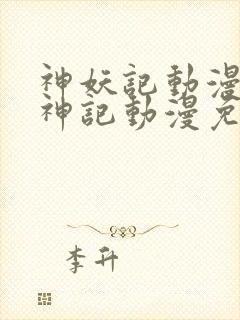 神妖記動漫
神記動漫免
李升